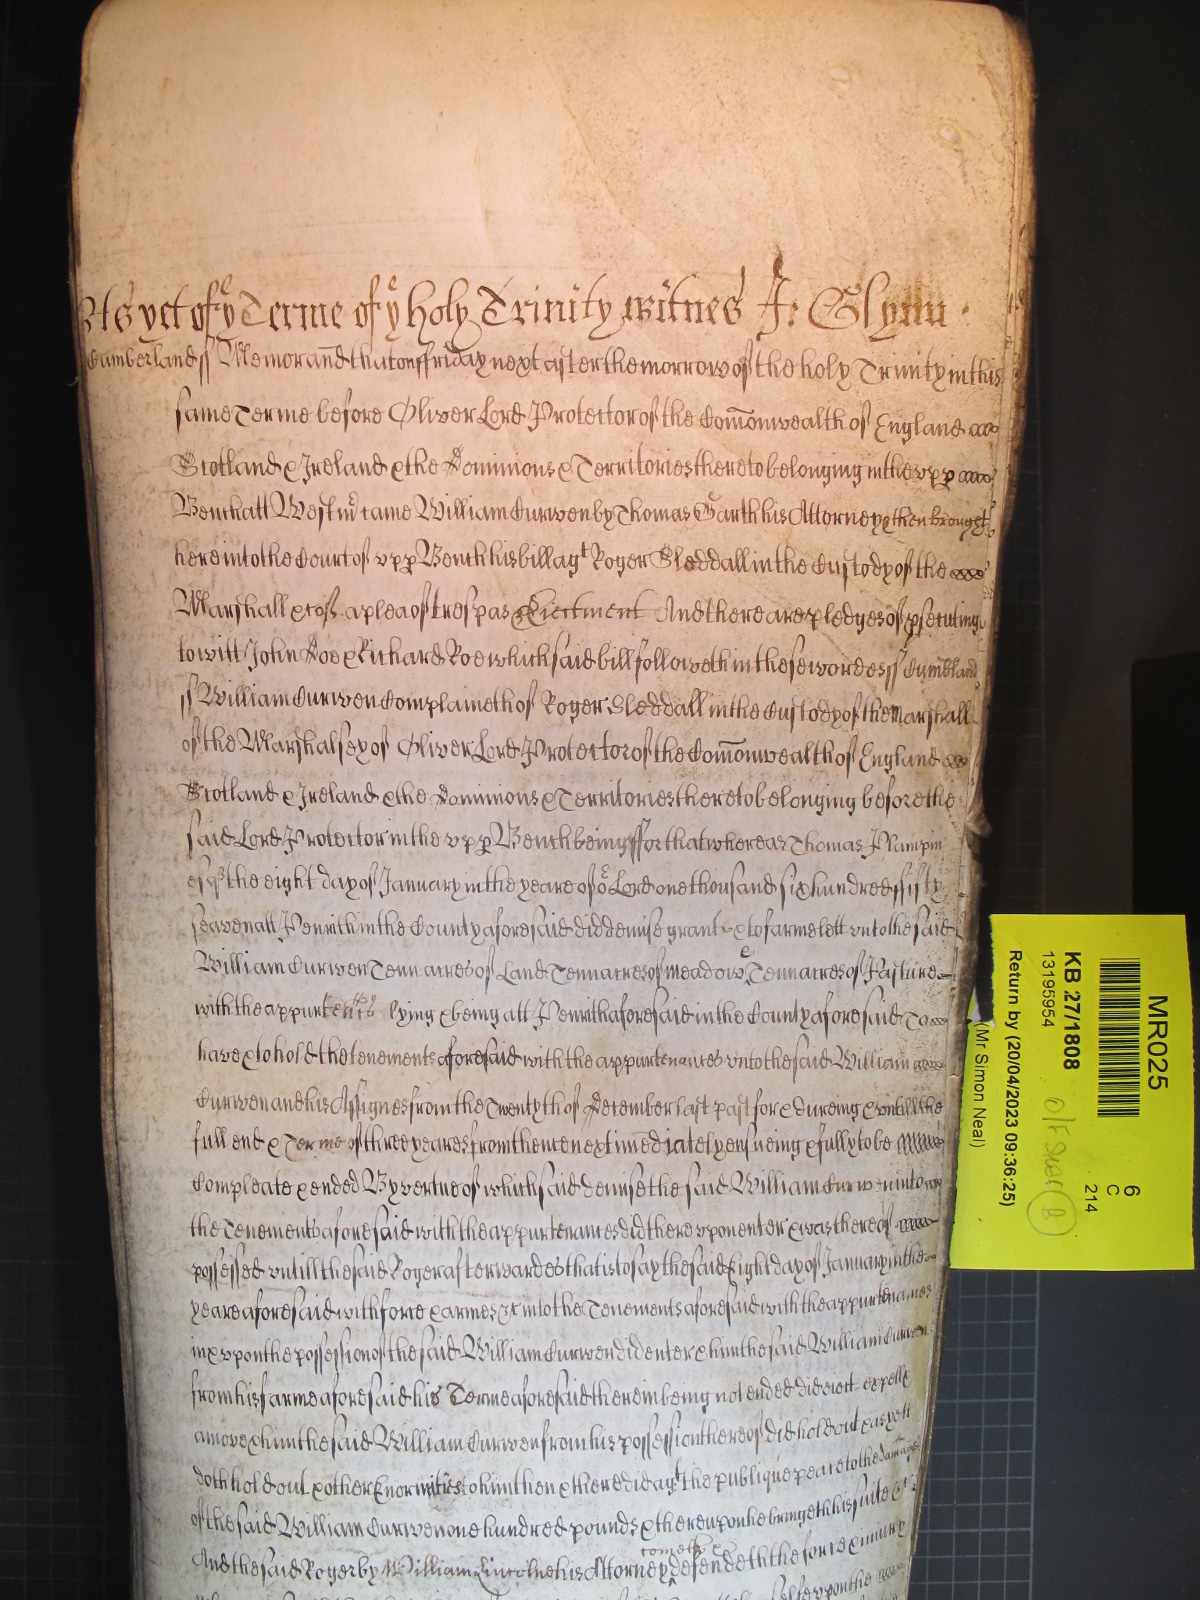 As yet of ye Terme of ye holy Trinity witnes Jo: Glynn
Cumberland ss Memorand that on ffriday next after the morrow of the holy Trinity in this
same Terme before Oliver Lord Protector of the Comonwealth of England
Scotland & Ireland & the Dominions & Territories thereto belonging in the vpp
Bench att Westmr came William Curwen by Thomas Garth his Attorney & then brought
here into the Court of vpp Bench his bill agt Roger Sleddall in the Custody of the
Marshall &c of a plea of trespas & Eiectment And there are pledges of psecuting
to witt John Doe & Richard Roe which said bill followeth in these wordes ss Cumbland
ss William Curwen Complaineth of Roger Sleddall in the Custody of the Marshall
of the Marshalsey of Oliver Lord Protector of the Comonwealth of England
Scotland & Ireland & the Dominions & Territories thereto belonging before the
said Lord Protector in the vpp Bench being ffor that whereas Thomas Plampin
esqr the eight day of January in the yeare of or Lord one thousand six hundred ffifty
seaven att Penrith in the County aforesaid did demise grant & to farme lett vnto the said
William Curwen Tenn acres of Land Tenn acres of meadowe Tenn acres of Pasture
with the appurtenns lying & being att Penrith aforesaid in the County aforesaid To
have & to hold the tenements aforesaid with the appurtenances vnto the said William
Curwen and his Assignes from the Twentyth of December last past for & dureing & vntill the
full end & Terme of three yeares from thence next imediately ensueing & fully to be
Compleate & ended By vertue of which said demise the said William Curwen into
the Tenements aforesaid with the appurtenances did therevpon enter & was thereof
possessed vntill the said Roger afterwardes that is to say the said Eight day of January in the
yeare aforesaid with force & armes &c into the Tenements aforesaid with the appurtenances
in & vpon the possession of the said William Curwen did enter & him the said William Curwen
from his farme aforesaid his Terme aforesaid therein being not ended did eiect expell &
amove & him the said William Curwen from his possession thereof did hold out & as yett
doth hold out & other Enormities to him then & there did agt the publique peace to the damage
of the said William Curwen one hundred pounds & therevpon he bringeth his suite &c
And the said Roger by William Lincolne his Attorney cometh & defendeth the force & iniury
MR025
6
C
214
KB 27/1808
13195954
Return by (20/04/2023 09:36:25)
(Mr Simon Neal)